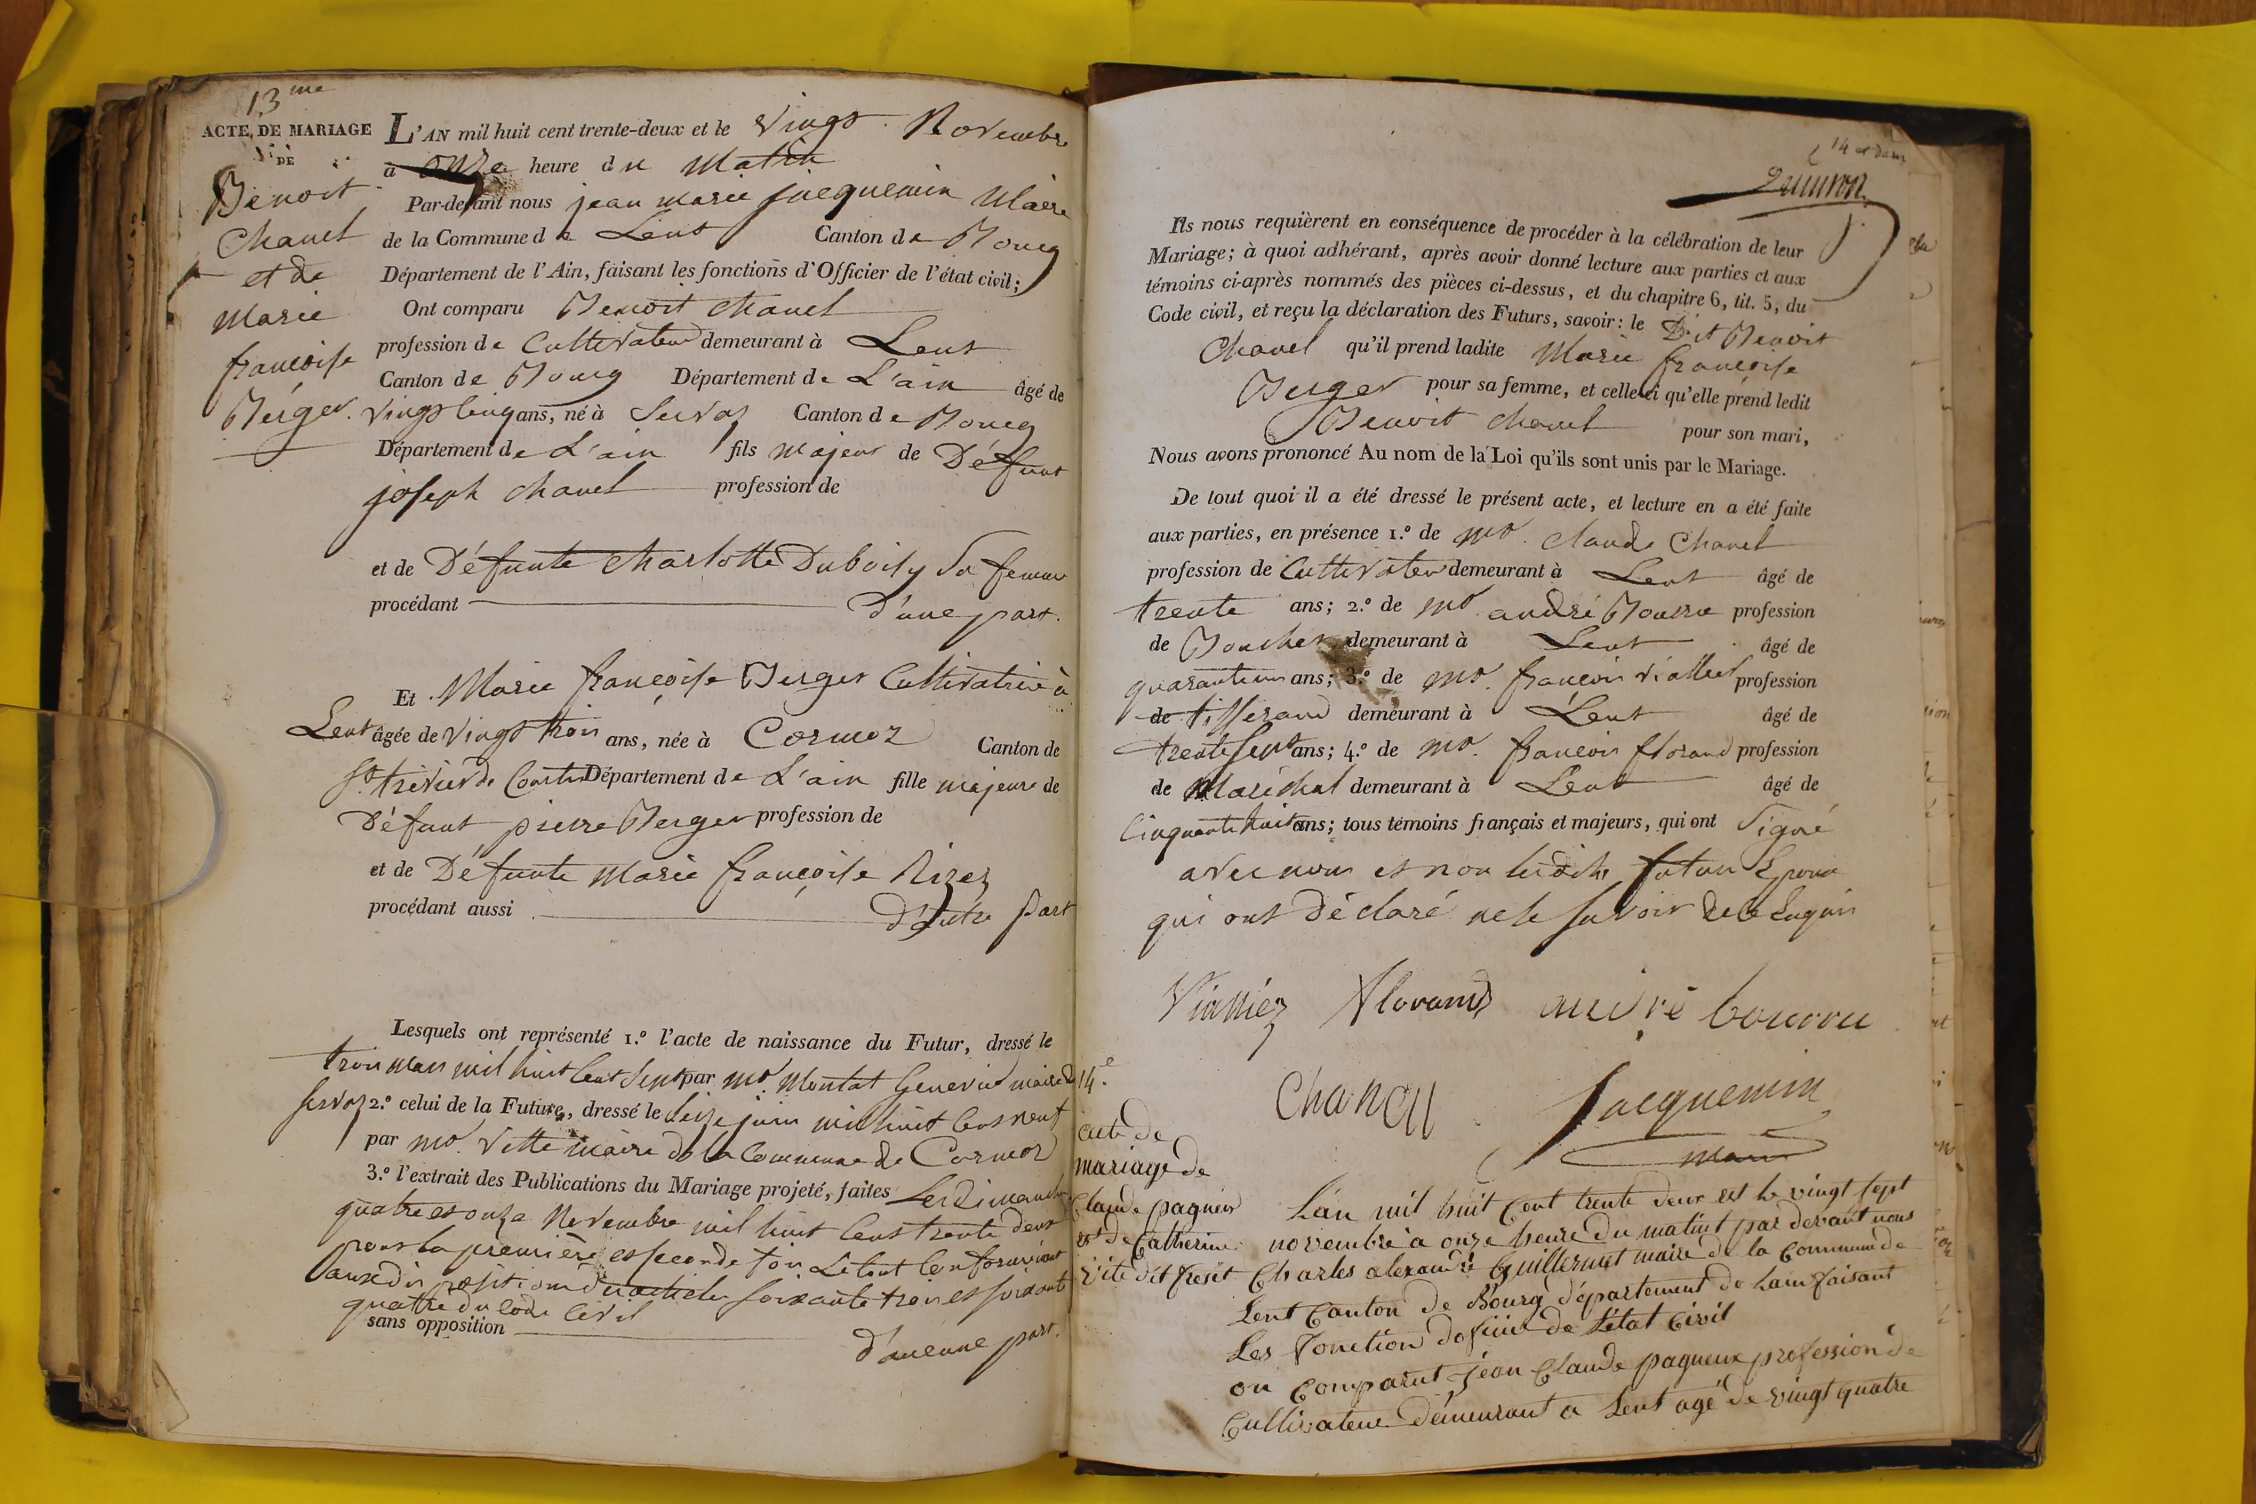 13me
ACTE DE MARIAGE
DE
Benoit
Chanel
et de
Marie
françoise
Berger.
L'AN mil huit cent trente-deux et le vingt Novembre
à onze heure du Matin
Par-devant nous jean marie jacquemin Maire
de la Commune de Lent Canton de Bourg
Département de l'Ain, faisant les fonctions d'Officier de l'état civil;
Ont comparu Benoit Chanel
profession de Cultivateur demeurant à Lent
Canton de Bourg Département de L'ain âgé de
vingt cinq ans, né à Servas Canton de Bourg
Département de L'ain fils majeur de Défunt
joseph Chanel profession de
et de Défunte Charlotte Duboisy sa femme
procédant d'une part.
Et Marie françoise Berger Cultivatrice à
Lent âgée de vingt trois ans, née à Cormoz Canton de
St. trivier de Courtes Département de L'ain fille majeure de
Défunt pierre Berger profession de
et de Défunte Marie françoise Rizez
procédant aussi d'Autre Part
Lesquels ont représenté 1.º l'acte de naissance du Futur, dressé le
trois mars mil huit Cent Sept par mr. Montat Genevied maire de
Servas 2.º celui de la Future, dressé le Seize juin mil huit Cent neuf
par mr. Vette maire de la Commune de Cormoz
3.º l'extrait des Publications du Mariage projeté, faites Les Dimanche
quatre et onze Novembre mil huit Cent trente deux
pour la première et seconde fois Le tout Conformément
aux dispositions d'articles soixante trois et soixante
quatre du Code Civil
sans opposition d'aucune part.
14 et dern
Ils nous requièrent en conséquence de procéder à la célébration de leur
Mariage; à quoi adhérant, après avoir donné lecture aux parties et aux
témoins ci-après nommés des pièces ci-dessus, et du chapitre 6, tit. 5, du
Code civil, et reçu la déclaration des Futurs, savoir: le Dit Benoit
Chanel qu'il prend ladite Marie françoise
Berger pour sa femme, et celle-ci qu'elle prend ledit
Benoit Chanel pour son mari,
Nous avons prononcé Au nom de la Loi qu'ils sont unis par le Mariage.
De tout quoi il a été dressé le présent acte, et lecture en a été faite
aux parties, en présence 1.º de mr. Claude Chanel
profession de Cultivateur demeurant à Lent âgé de
trente ans; 2.º de mr andré Bourru profession
de Boucher demeurant à Lent âgé de
quarante un ans; 3.º de mr. françois viallet profession
de tisserand demeurant à Lent âgé de
trente sept ans; 4.º de mr. françois florand profession
de Maréchal demeurant à Lent âgé de
Cinquante huit ans; tous témoins français et majeurs, qui ont Signé
avec nous et non lesdits futurs Epoux
qui ont Déclaré ne le Savoir de ce Enquis
Vialliez Florand andré bourru
Chanel Jacquemin
Maire
14e
acte de
mariage de
Claude pagneux
et de Catherine
vité dit fresit
L'an mil huit Cent trente deux et le vingt sept
novembre à onze heure du matint par devant nous
Charles alexandre Guillermet maire de la Commune de
Lent Canton de Bourg département de Lain faisant
Les fonction dofficie de l'état Civil
on Comparut jean Claude pagneux profession de
Cultivateur demeurant a Lent agé de vingt quatre